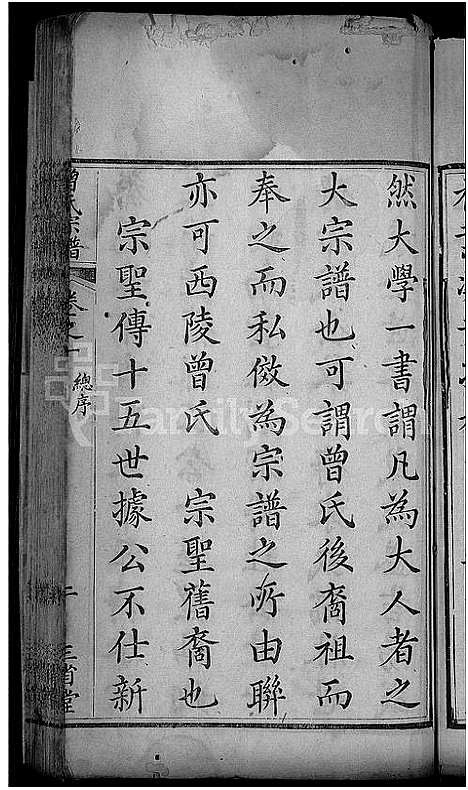 然大學一書謂凡為大人者之
大宗譜也可謂曾氏後裔祖而
奉之而私倣為宗譜之所由聯
亦可西陵曾氏　宗聖舊裔也
宗聖傳十五世據公不仕新
曾氏宗譜 卷之一 總序 二 三省堂
FamilySearch